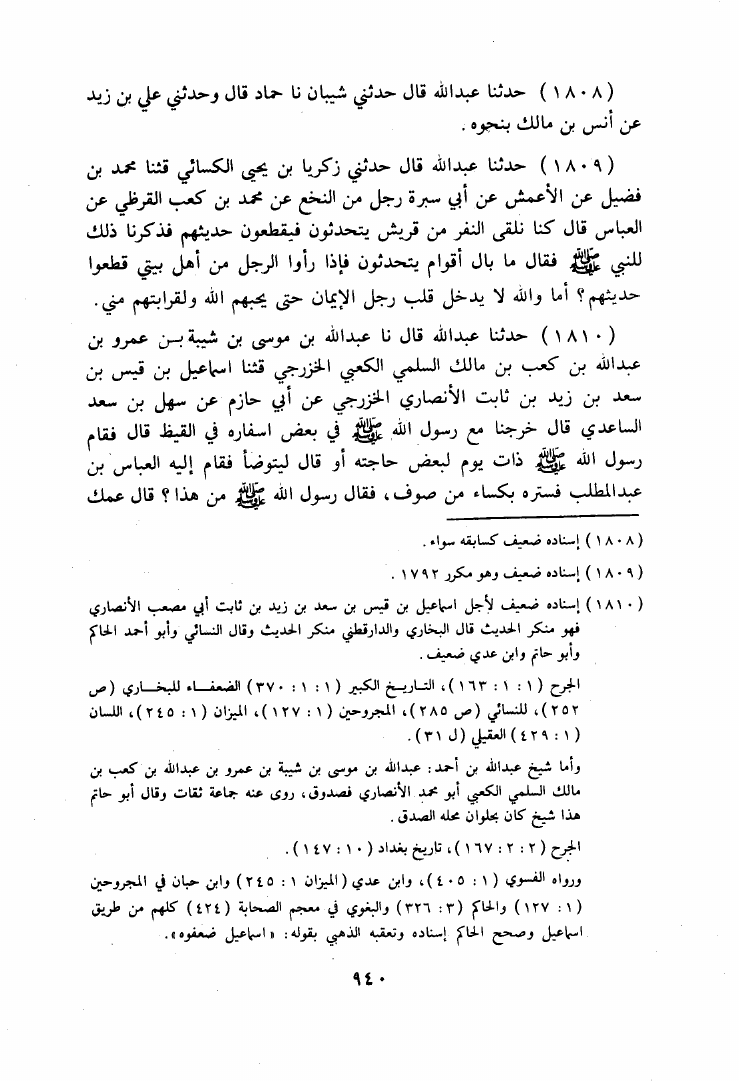 (١٨٠٨) حدثنا عبدالله قال حدثني شيبان نا حماد قال وحدثني علي بن زيد
عن أنس بن مالك بنحوه .
(١٨٠٩) حدثنا عبدالله قال حدثني زكريا بن يحيى الكسائي قثنا محمد بن
فضيل عن الأعمش عن أبي سبرة رجل من النخع عن محمد بن كعب القرظي عن
العباس قال كنا نلقى النفر من قريش يتحدثون فيقطعون حديثهم فذكرنا ذلك
للنبي ﷺ فقال ما بال أقوام يتحدثون فإذا رأوا الرجل من أهل بيتي قطعوا
حديثهم؟ أما والله لا يدخل قلب رجل الإيمان حتى يحبهم الله ولقرابتهم مني.
(١٨١٠) حدثنا عبدالله قال نا عبدالله بن موسى بن شيبة بـن عمرو بن
عبدالله بن كعب بن مالك السلمي الكعبي الخزرجي قثنا اسماعيل بن قيس بن
سعد بن زيد بن ثابت الأنصاري الخزرجي عن أبي حازم عن سهل بن سعد
الساعدي قال خرجنا مع رسول الله ﷺ في بعض اسفاره في القيظ قال فقام
رسول الله ﷺ ذات يوم لبعض حاجته أو قال ليتوضأ فقام إليه العباس بن
عبدالمطلب فستره بكساء من صوف، فقال رسول الله ﷺ من هذا؟ قال عمك
(١٨٠٨) إسناده ضعيف كسابقه سواء.
(١٨٠٩) إسناده ضعيف وهو مكرر ١٧٩٢ .
(١٨١٠) إسناده ضعيف لأجل اسماعيل بن قيس بن سعد بن زيد بن ثابت أبي مصعب الأنصاري
فهو منكر الحديث قال البخاري والدارقطني منكر الحديث وقال النسائي وأبو أحمد الحاكم
وأبو حاتم وابن عدي ضعيف.
الجرح (١ : ١ : ١٦٣)، التـاريـخ الكبير (١ : ١ : ٣٧٠) الضعفـاء للبخـاري (ص
٢٥٢)، للنسائي (ص ٢٨٥)، المجروحين (١ : ١٢٧)، الميزان (١ : ٢٤٥)، اللسان
(١ : ٤٢٩) العقيلي (ل ٣١).
وأما شيخ عبدالله بن أحمد: عبدالله بن موسى بن شيبة بن عمرو بن عبدالله بن كعب بن
مالك السلمي الكعبي أبو محمد الأنصاري فصدوق، روى عنه جماعة ثقات وقال أبو حاتم
هذا شيخ كان بحلوان محله الصدق.
الجرح (٢ : ٢ : ١٦٧)، تاريخ بغداد (١٠ : ١٤٧).
ورواه الفسوي (١ : ٤٠٥)، وابن عدي (الميزان ١ : ٢٤٥) وابن حبان في المجروحين
(١ : ١٢٧) والحاكم (٣ : ٣٢٦) والبغوي في معجم الصحابة (٤٢٤) كلهم من طريق
اسماعيل وصحح الحاكم إسناده وتعقبه الذهبي بقوله: «اسماعيل ضعفوه».
٩٤٠